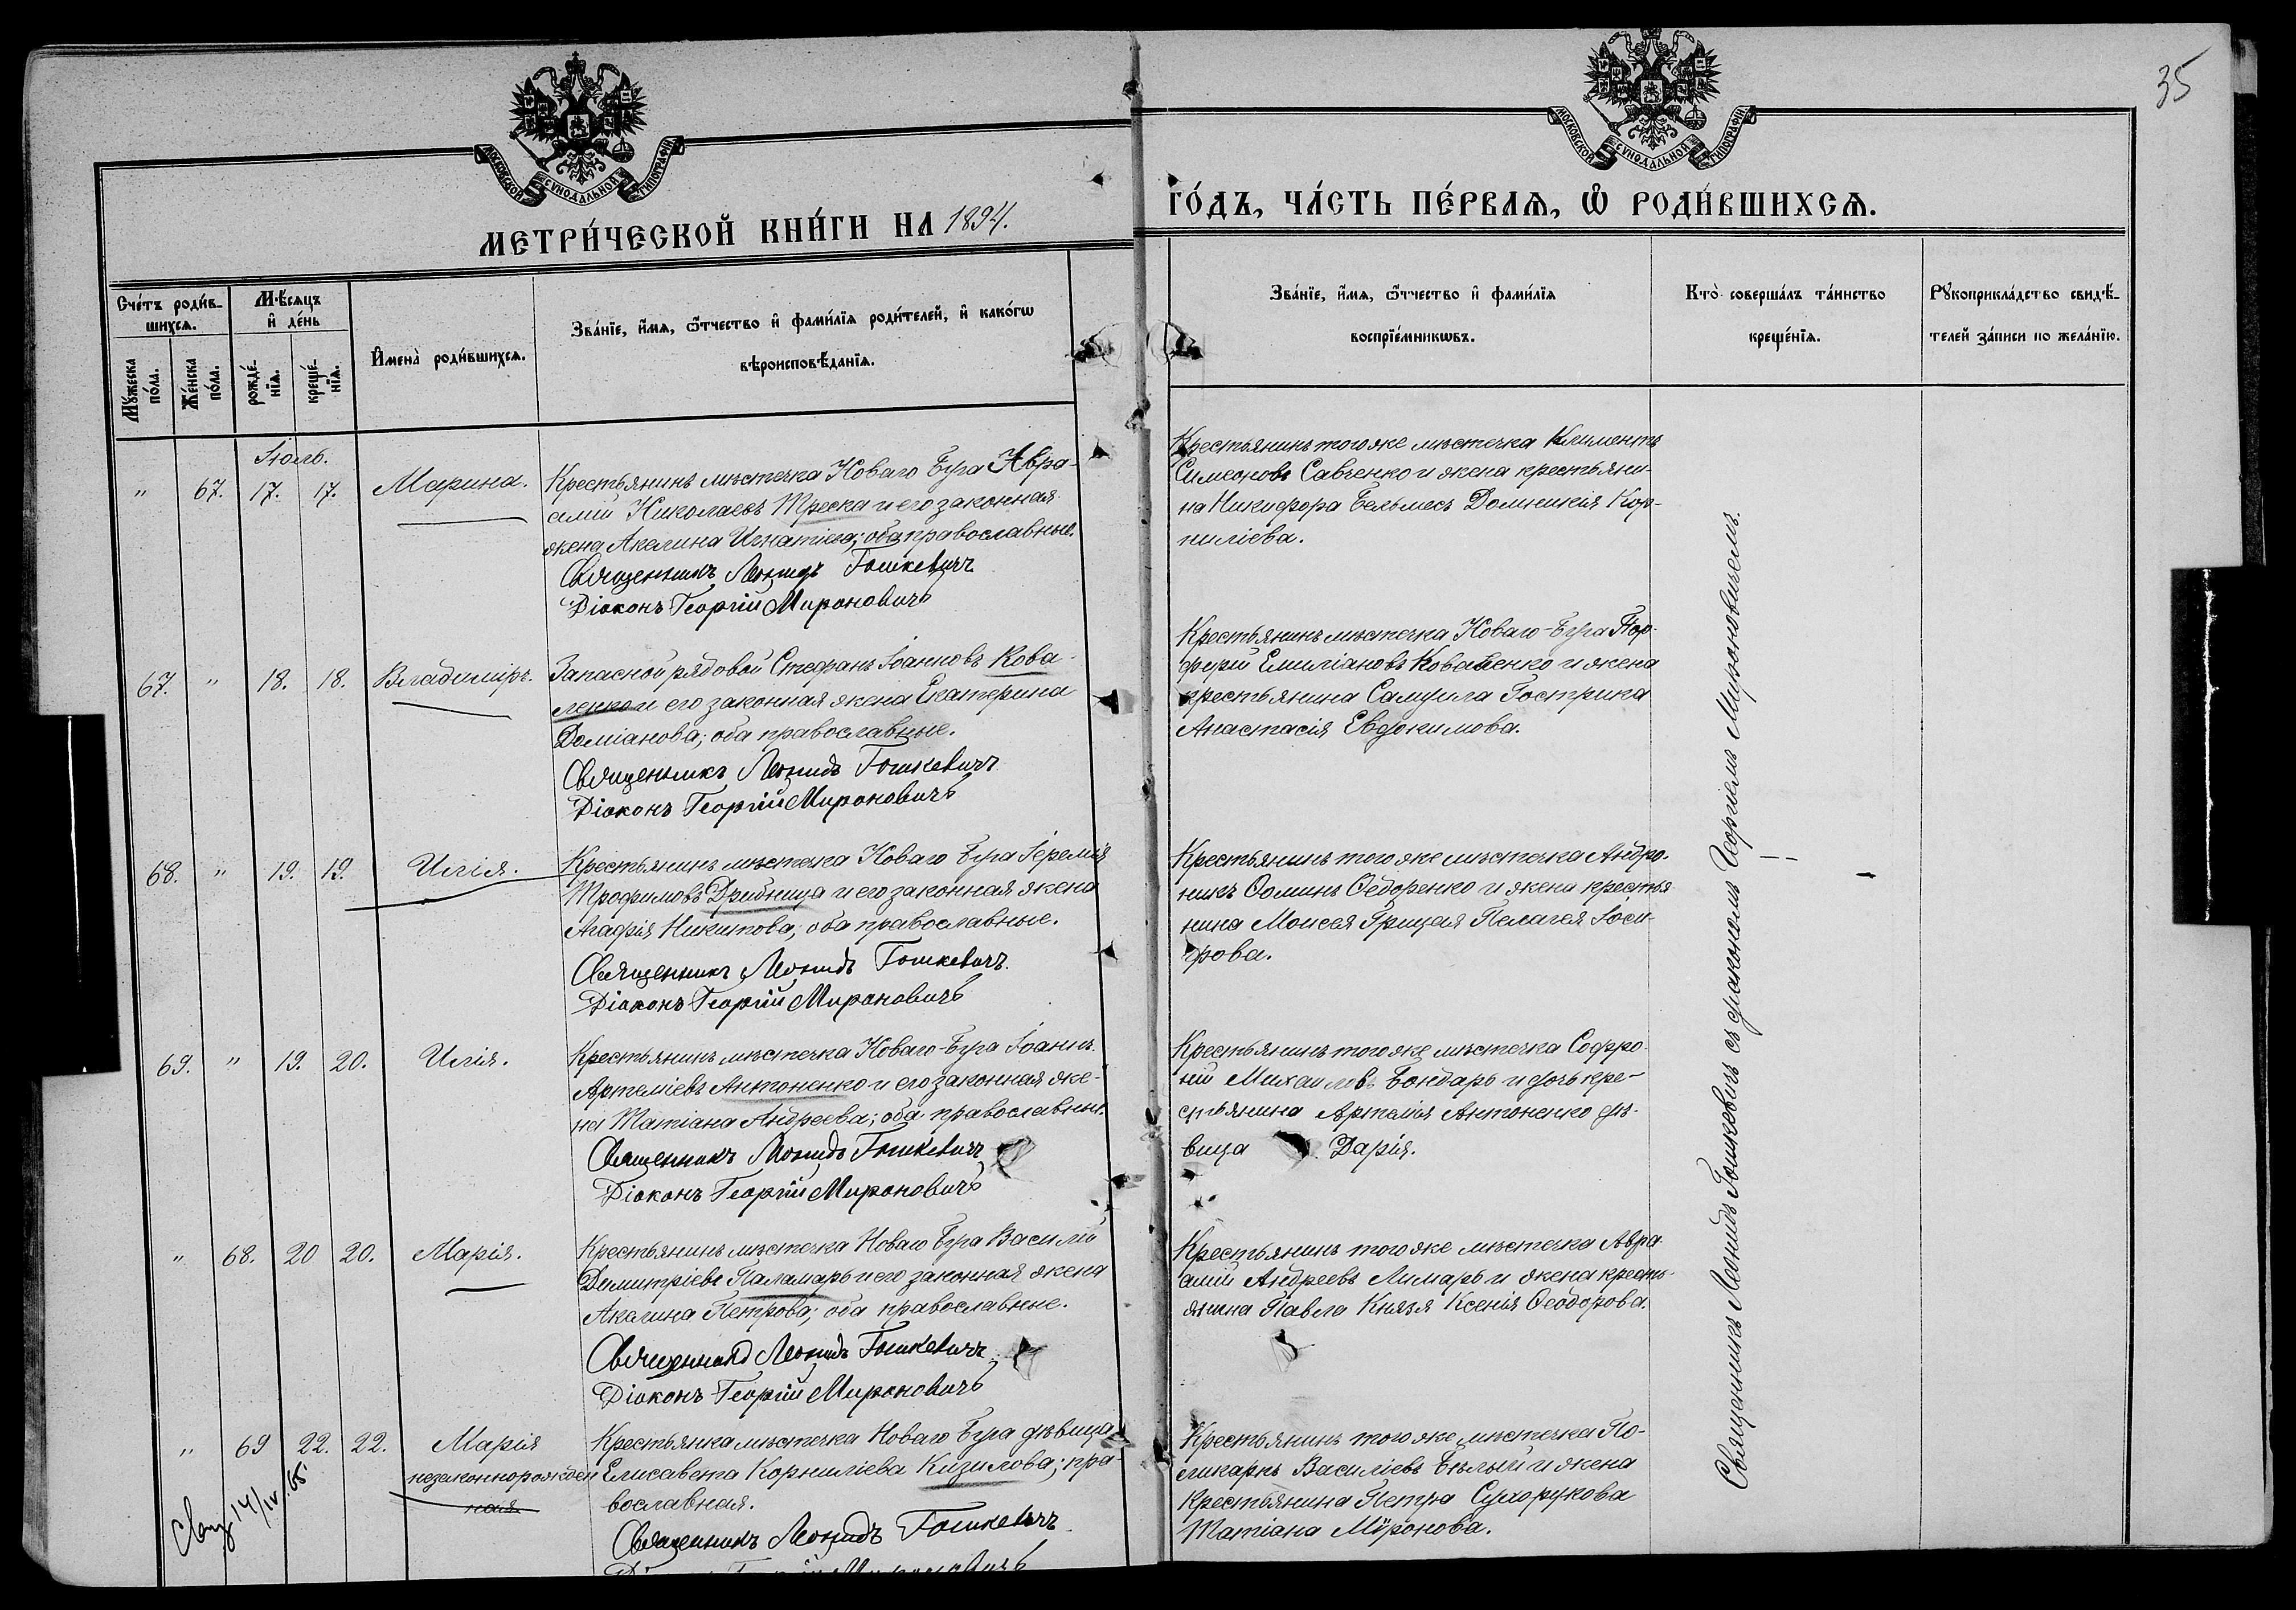 35
МОСКОВСКОЙ СѴНОДАЛЬНОЙ ТИПОГРАФІИ
МОСКОВСКОЙ СѴНОДАЛЬНОЙ ТИПОГРАФІИ
МЕТРИ́ЧЕСКОЙ КНИ́ГИ НА 1894.
ГО́ДЪ, ЧА́СТЬ ПЕ́РВАѦ, Ѽ РОДИ́ВШИХСѦ.
Сче́тъ роди́в-
шихсѧ.
Мꙋ́жеска
по́ла.
Же́нска
по́ла.
Мѣ́сѧцъ
и҆ де́нь
рожде́-
нїѧ.
креще́-
нїѧ.
И҆мена̀ роди́вшихсѧ.
Зва́нїе, и҆́мѧ, ѻ҆́тчество и҆ фами́лїѧ роди́телей, и҆ како́гѡ
вѣроисповѣ́данїѧ.
Зва́нїе, и҆́мѧ, ѻ҆́тчество и҆ фами́лїѧ
воспрїе́мникѡвъ.
Кто̀ соверша́лъ та́инство
креще́нїѧ.
Рꙋкоприкла́дство свидѣ́-
телей за́писи по жела́нїю.
Іюль.
" 67. 17. 17. Марина.
Крестьянинъ мѣстечка Новаго Буга Авра-
амій Николаевъ Треска и его законная
жена Акилина Игнатіева; оба православные.
Священникъ Леонидъ Гошкевичъ
Діаконъ Георгій Мироновичъ
Крестьянинъ того же мѣстечка Климентъ
Симеоновъ Савченко и жена крестьяни-
на Никифора Бельмесъ Домникія Кор-
ниліева.
67. " 18. 18. Владиміръ.
Запасной рядовой Стефанъ Іоанновъ Кова-
ленко и его законная жена Екатерина
Доміанова; оба православные.
Священникъ Леонидъ Гошкевичъ
Діаконъ Георгій Мироновичъ
Крестьянинъ мѣстечка Новаго-Буга Пор-
фирій Емиліановъ Коваленко и жена
крестьянина Самуила Гострика
Анастасія Евдокимова.
68. " 19. 19. Илія.
Крестьянинъ мѣстечка Новаго Буга Іеремія
Трофимовъ Дрибница и его законная жена
Агафія Никитова; оба православные.
Священникъ Леонидъ Гошкевичъ
Діаконъ Георгій Мироновичъ
Крестьянинъ того же мѣстечка Андро-
никъ Ѳоминъ Ѳедоренко и жена крестья
нина Моисея Грицая Пелагея Іоси-
фова.
69. " 19. 20. Илія.
Крестьянинъ мѣстечка Новаго-Буга Іоаннъ
Артеміевъ Антоненко и его законная же-
на Татіана Андреева; оба православные.
Священникъ Леонидъ Гошкевичъ
Діаконъ Георгій Мироновичъ
Крестьянинъ того же мѣстечка Софро-
ній Михаиловъ Бондарь и дочь кре-
стьянина Артемія Антоненко дѣ-
вица Дарія.
" 68. 20 20. Марія.
Крестьянинъ мѣстечка Новаго Буга Василій
Димитріевъ Паламарь и его законная жена
Акилина Петрова; оба православные.
Священникъ Леонидъ Гошкевичъ
Діаконъ Георгій Мироновичъ
Крестьянинъ того же мѣстечка Авра-
амій Андреевъ Лимарь и жена кресть-
янина Павла Князя Ксенія Ѳеодорова.
" 69 22. 22. Марія
незаконнорожден
ная
14/IV 65.
Крестьянка мѣстечка Новаго Буга дѣвица
Елисавета Корниліева Кизилова; пра-
вославная.
Священникъ Леонидъ Гошкевичъ
Діаконъ Георгій Мироновичъ
Крестьянинъ того же мѣстечка По-
ликарпъ Василіевъ Бѣлый и жена
крестьянина Петра Сухорукова
Татіана Мѵронова.
Священникъ Леонидъ Гошкевичъ съ діакономъ Георгіемъ Мироновичемъ.